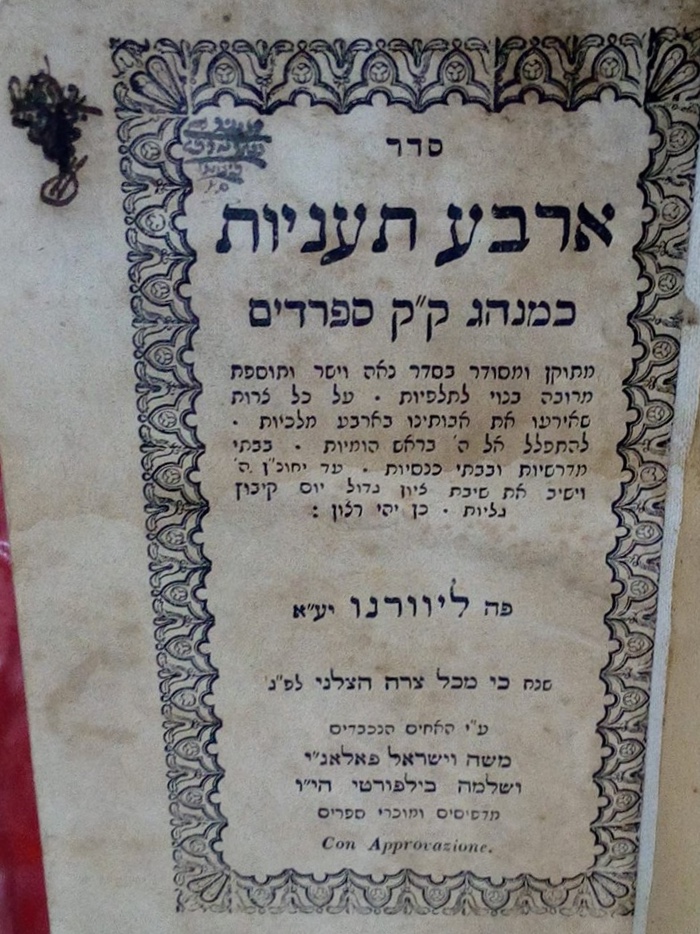 סדר
ארבע תעניות
כמנהג ק״ק ספרדים
מתוקן ומסודר בסדר נאה וישר ותוספת
מרובה בנוי לתלפיות ・ על כל צרות
שאירעו את אבותינו בארבע מלכיות ・
להתפלל אל ה׳ בראש הומיות ・ בבתי
מדרשיות ובבתי כנסיות ・ עד יחונ״ן ה׳
וישיב את שיבת ציון גדול יום קיבוץ
גליות ・ כן יהי רצון :
פה ליוורנו יע״א
שנת כי מכל צרה הצלני לפ״ג
ע״י האחים הנכבדים
משה וישראל פאלאג׳י
ושלמה בילפורטי הי״ו
מדפיסים ומוכרי ספרים
Con Approvazione.